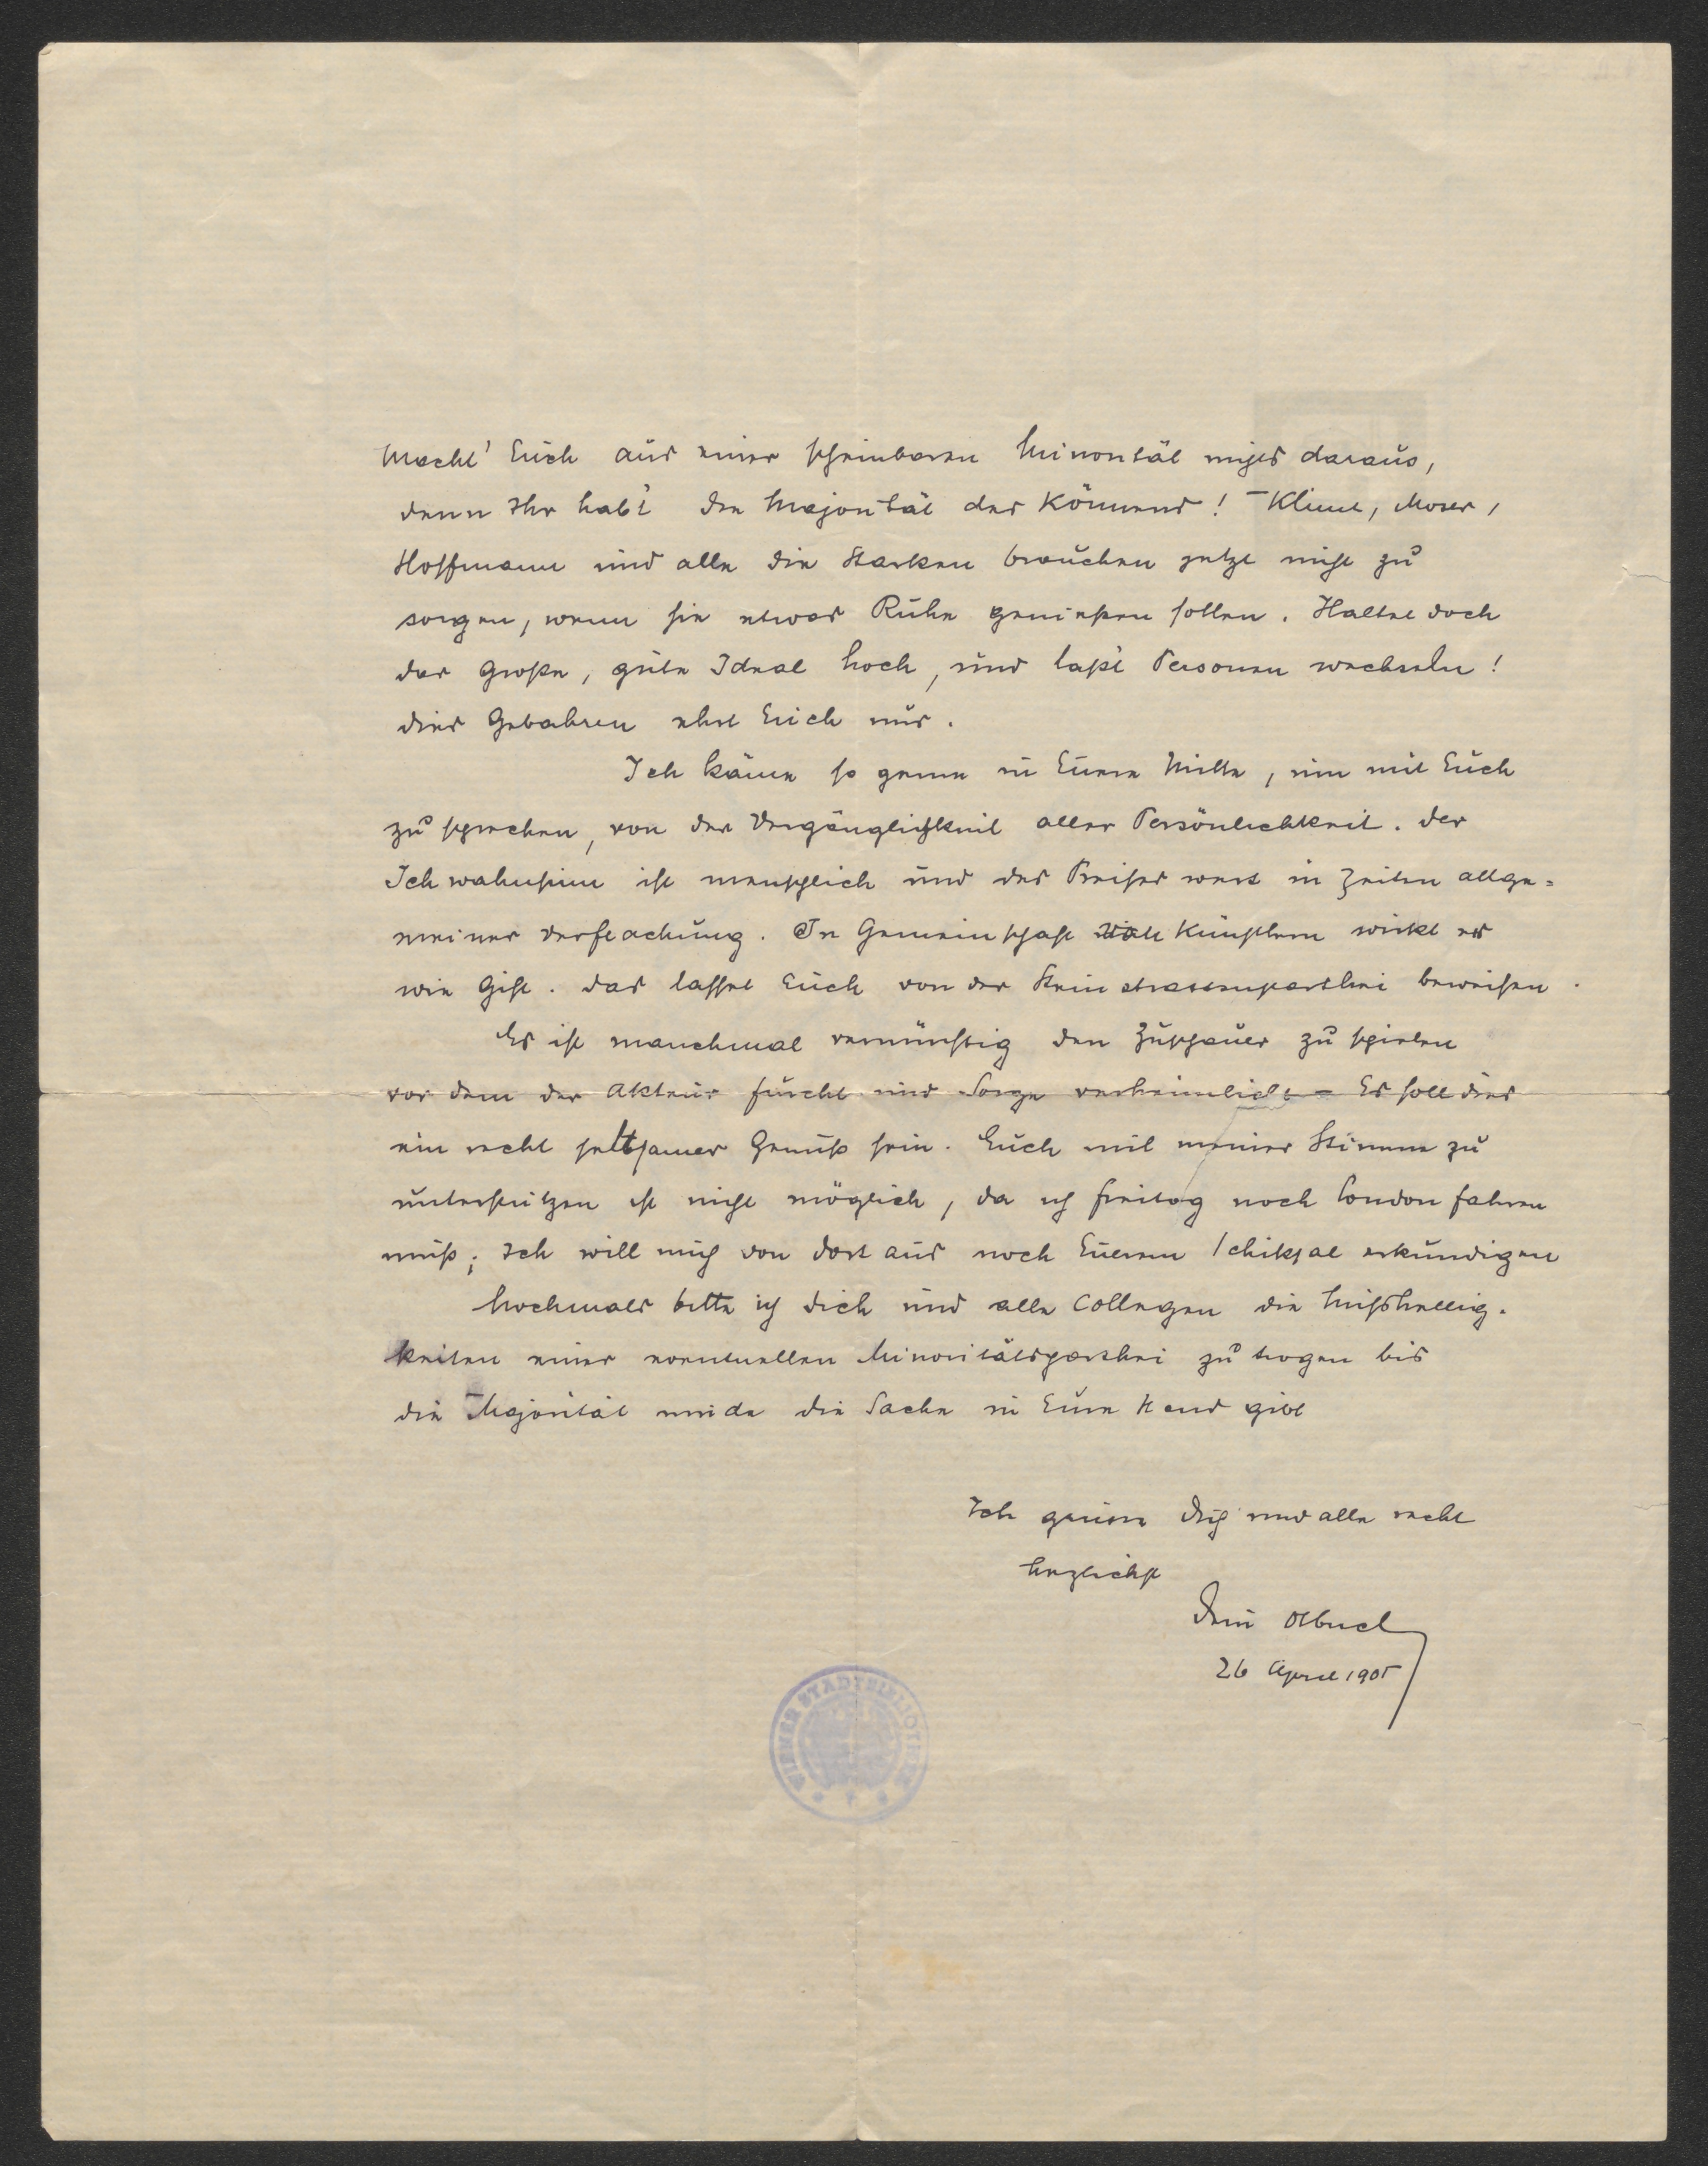 Macht' Euch aus einer scheinbaren Minorität nichts daraus,
denn Ihr habt die Majorität des Könnens! – Klimt, Moser,
Hoffmann und alle die Starken brauchen jetzt nicht zu
sorgen, wenn sie etwas Ruhe genießen sollen. Haltet doch
das große, gute Ideal hoch, und laßt Personen wechseln!
dies Gebahren ehrt Euch nur.
Ich käme so gerne in Euere Mitte, um mit Euch
zu sprechen, von der Vergänglichkeit aller Persönlichkeit. der
Ich wahnsinn ist menschlich und des Preises wert in Zeiten allge=
meiner Verflachung. In Gemeinschaft Künstlern wirkt er
wie Gift. das lasset Euch von der beweisen.
Es ist manchmal vernünftig den Zuschauer zu spielen
vor dem der Akteur furcht und Sorge verheimlicht – Es soll dies
ein recht seltsamer Genuß sein. Euch mit meiner Stimme zu
unterstützen ist nicht möglich, da ich freitag nach London fahren
muß; Ich will mich von dort aus nach Euerem Schiksal erkundigen
Nochmals bitte ich dich und alle Collegen die Mißhellig-
keiten einer eventuellen Minoritätsparthei zu tragen bis
die Majorität müde die Sache in Eure Hand gibt
Ich grüsse dich und alle recht
herzlichst
Dein Olbrich
26 April 1905
WIENER STADTBIBLIOTHEK